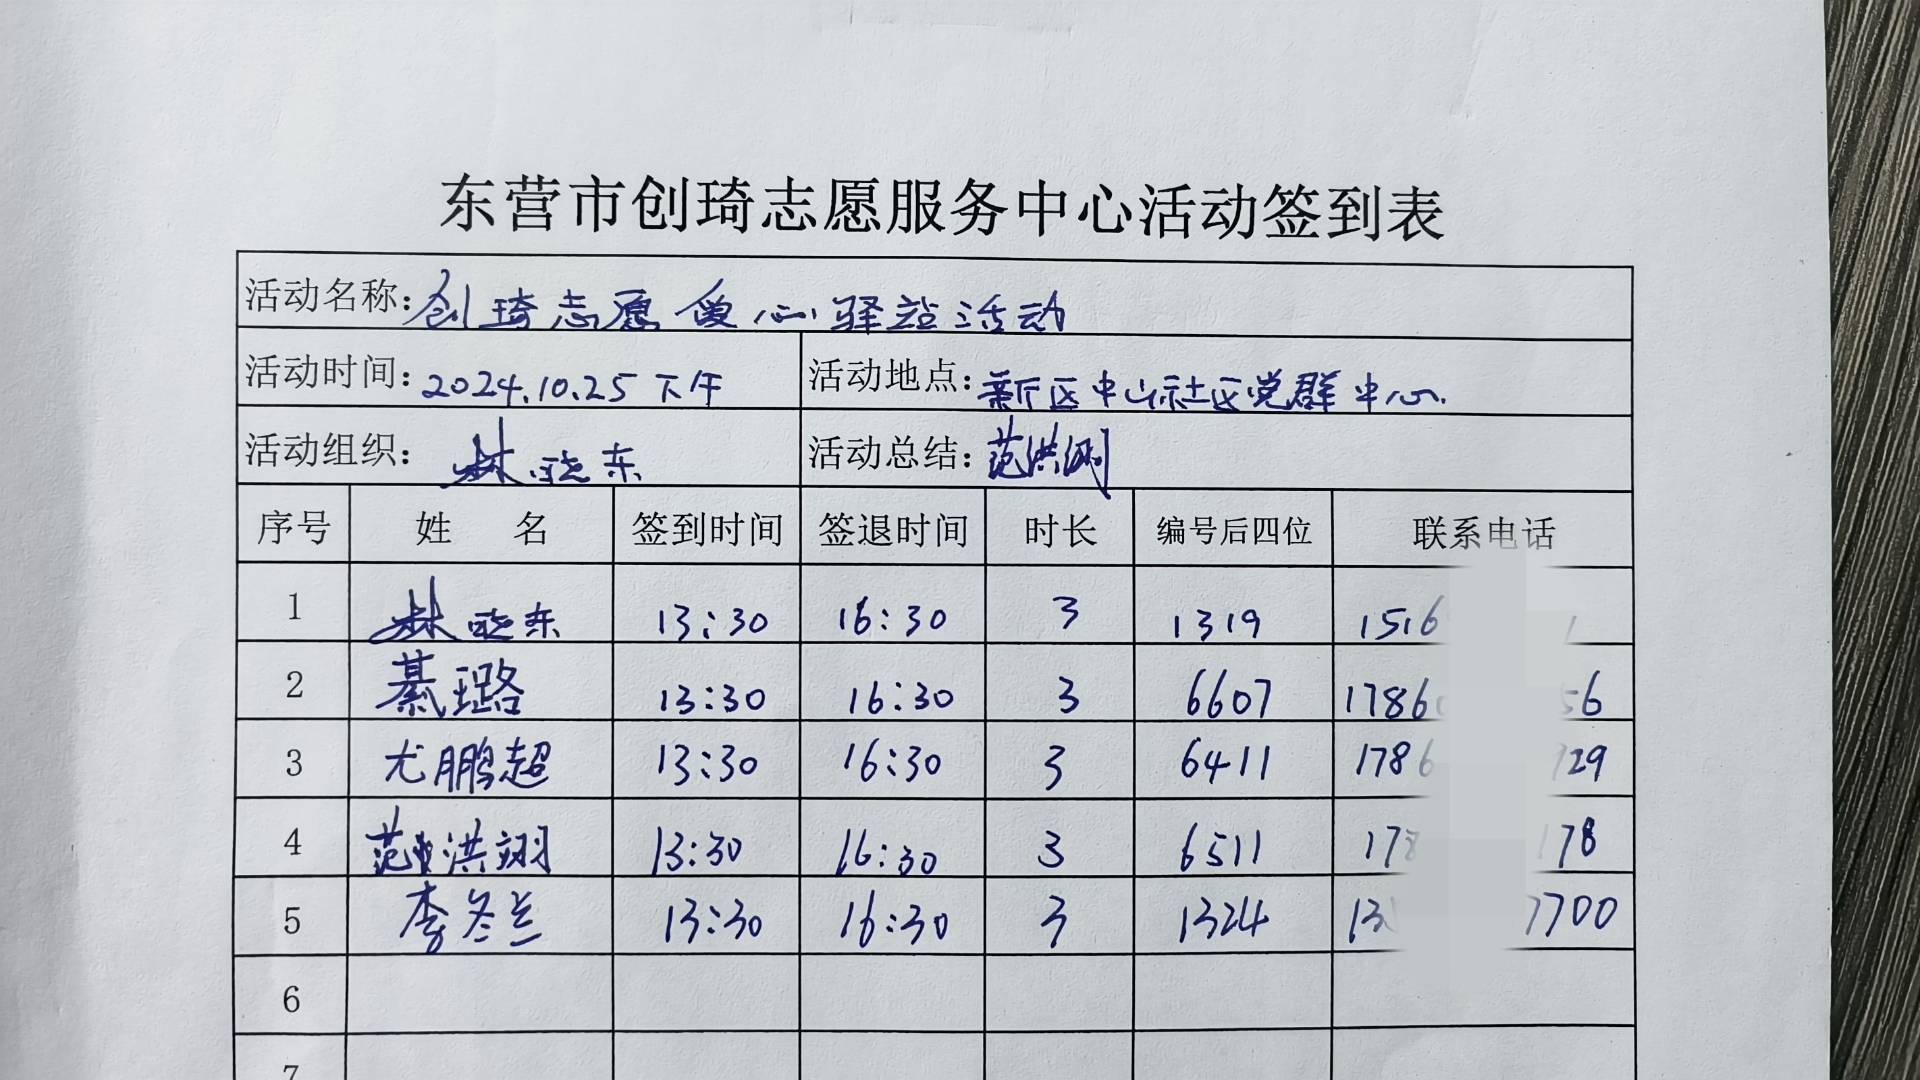 东营市创琦志愿服务中心活动签到表
活动名称：创琦志愿爱心驿站活动
活动时间：2024.10.25 下午 活动地点：新区中山社区党群中心
活动组织：林晓东 活动总结：范洪翊
序号 姓 名 签到时间 签退时间 时长 编号后四位 联系电话
1 林晓东 13:30 16:30 3 1319 1516
2 綦璐 13:30 16:30 3 6607 1786 56
3 尤鹏超 13:30 16:30 3 6411 1786 29
4 范洪翊 13:30 16:30 3 6511 178 178
5 李冬兰 13:30 16:30 3 1324 13 7700
6
7